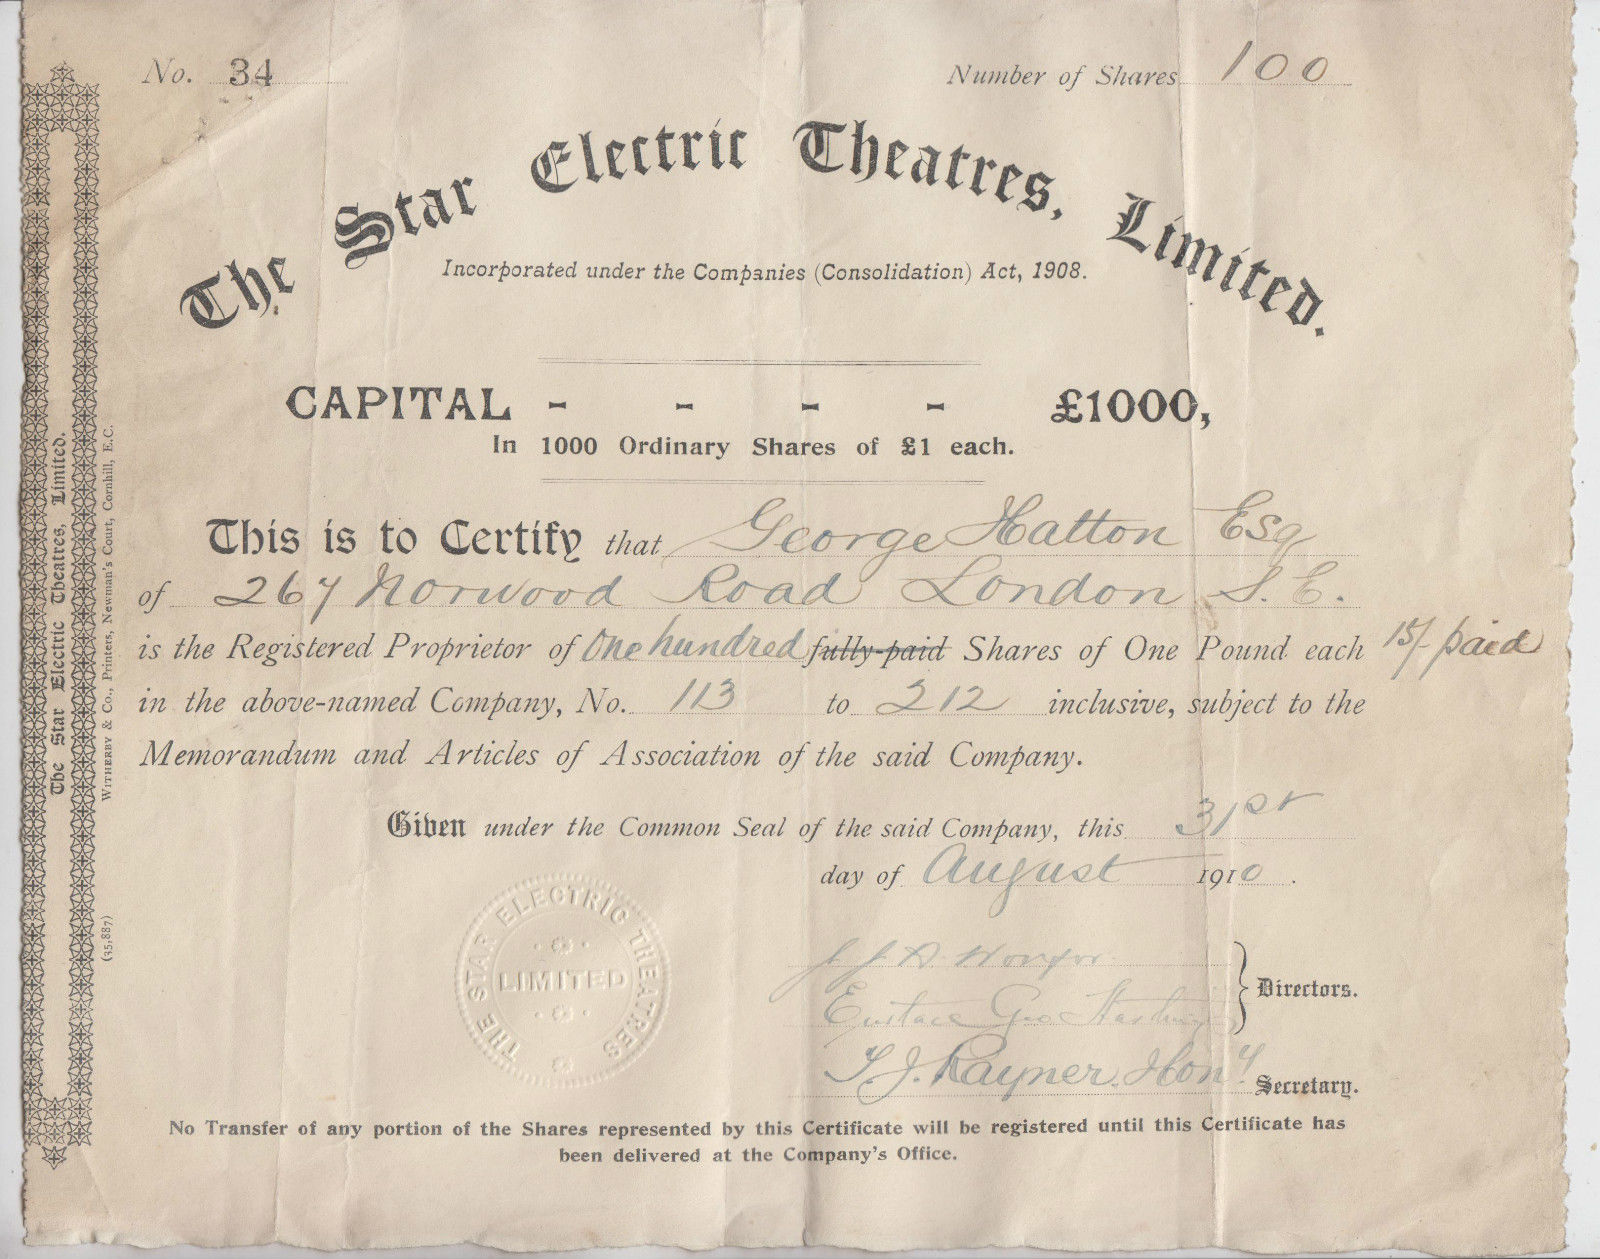 No. 34
Number of Shares 100
The Star Electric Theatres, Limited.
Incorporated under the Companies (Consolidation) Act, 1908.
CAPITAL - - - - £1000,
In 1000 Ordinary Shares of £1 each.
This is to Certify that George Hatton Esq
of 267 Norwood Road London S.E.
is the Registered Proprietor of One hundred fully-paid Shares of One Pound each 15/- paid
in the above-named Company, No. 113 to 212 inclusive, subject to the
Memorandum and Articles of Association of the said Company.
Given under the Common Seal of the said Company, this 31st
day of August 1910.
Eustace Geo.
Directors.
T. J. Rayner. Hony. Secretary.
THE STAR ELECTRIC THEATRES
LIMITED
No Transfer of any portion of the Shares represented by this Certificate will be registered until this Certificate has
been delivered at the Company's Office.
The Star Electric Theatres, Limited.
WITHERBY & Co., Printers, Newman's Court, Cornhill, E.C.
(35,887)